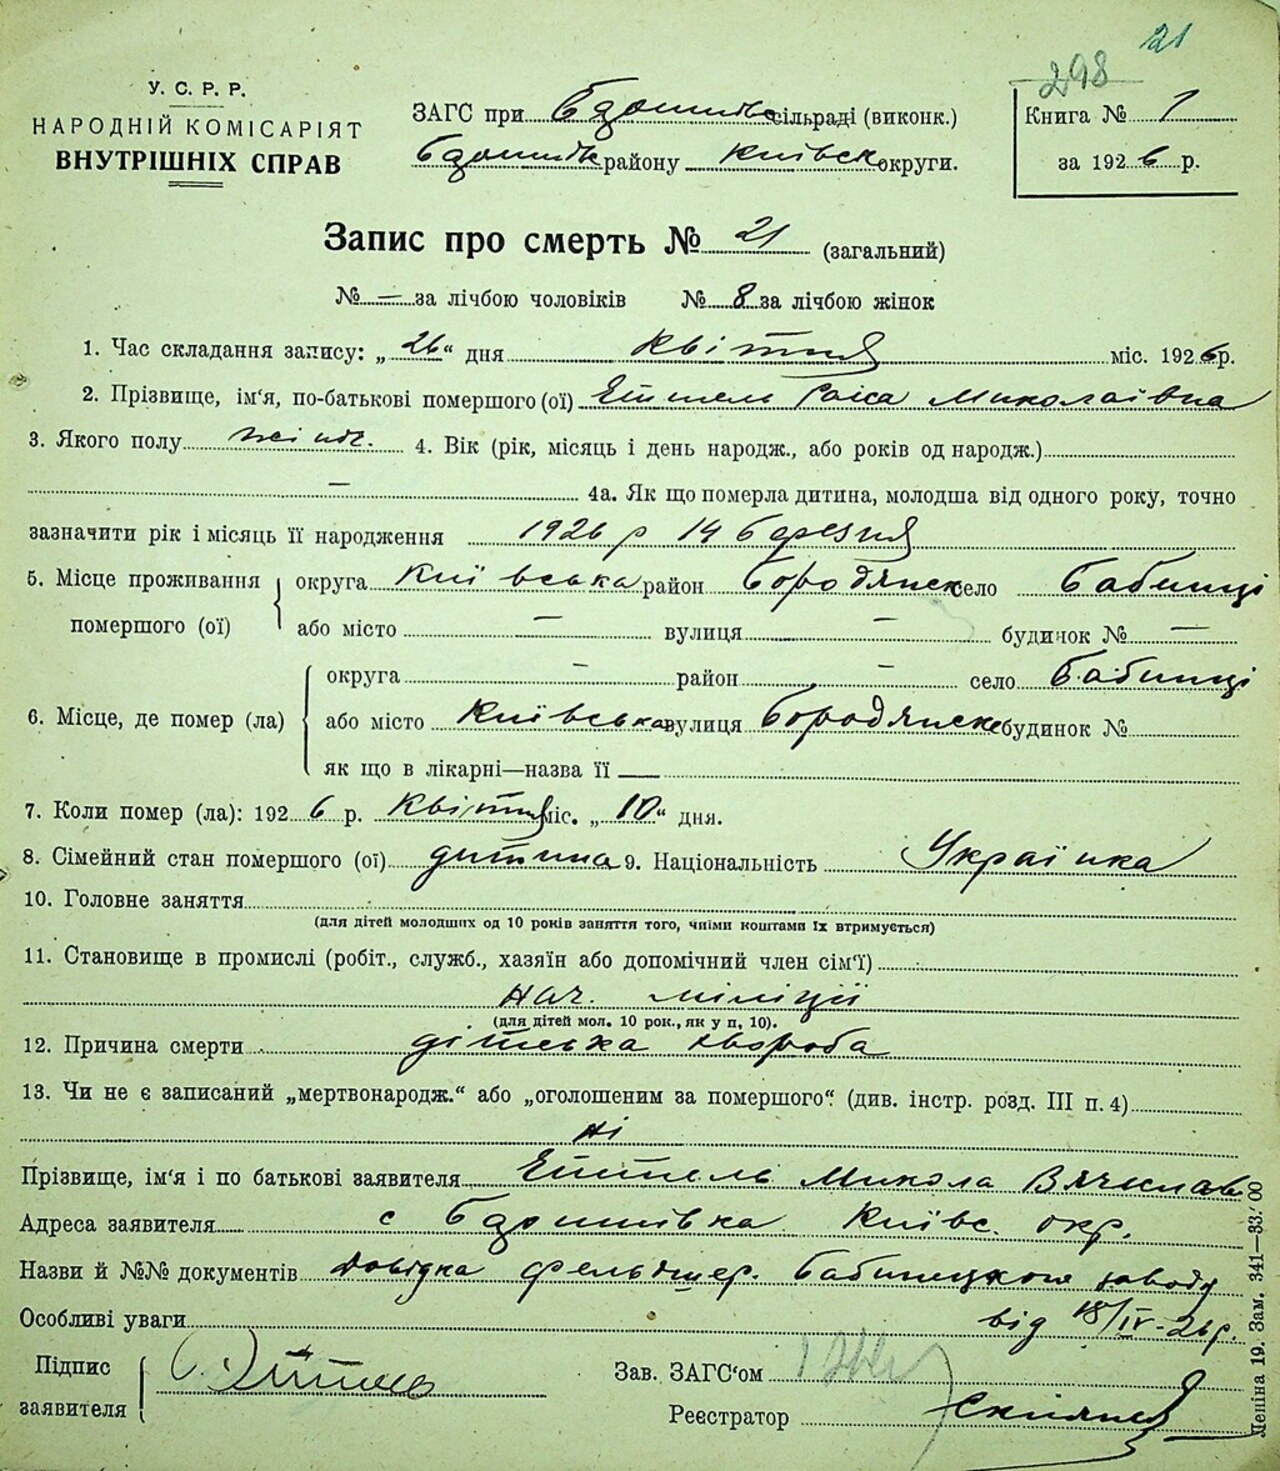 21
298
У. С. Р. Р.
НАРОДНІЙ КОМІСАРІЯТ
ВНУТРІШНІХ СПРАВ
ЗАГС при сільраді (виконк.)
району Київськ округи.
Книга № 1
за 1926 р.
Запис про смерть № 21 (загальний)
№ — за лічбою чоловіків № 8 за лічбою жінок
1. Час складання запису: „26“ дня квітня міс. 1926 р.
2. Прізвище, ім‘я, по-батькові помершого (ої) Ептель Раіса Миколаівна
3. Якого полу жіноч. 4. Вік (рік, місяць і день народж., або років од народж.)
— 4а. Як що померла дитина, молодша від одного року, точно
зазначити рік і місяць її народження 1926 р 14 березня
5. Місце проживання помершого (ої) округа Київська район Бородянськ село Бабинці
або місто — вулиця — будинок № —
6. Місце, де помер (ла) округа — район — село Бабинці
або місто Київська вулиця Бородянске будинок №
як що в лікарні—назва її —
7. Коли помер (ла): 1926 р. Квітня міс. „10“ дня.
8. Сімейний стан помершого (ої) дитина 9. Національність Українка
10. Головне заняття
(для дітей молодших од 10 років заняття того, чиїми коштами їх втримується)
11. Становище в промислі (робіт., служб., хазяїн або допомічний член сім‘ї)
нач. міліції
(для дітей мол. 10 рок., як у п, 10).
12. Причина смерти дітська хвороба
13. Чи не є записаний „мертвонародж.“ або „оголошеним за помершого“ (див. інстр. розд. III п. 4)
ні
Прізвище, ім‘я і по батькові заявителя Ептель Микола Вячеслав
Адреса заявителя с Київс. окр.
Назви й №№ документів Довідка фельдшер. Бабинецкого заводу
Особливі уваги від 18/IV-26 р.
Підпис заявителя
Зав. ЗАГС‘ом
Реєстратор
Леніна 19. Зам. 341—33.′00